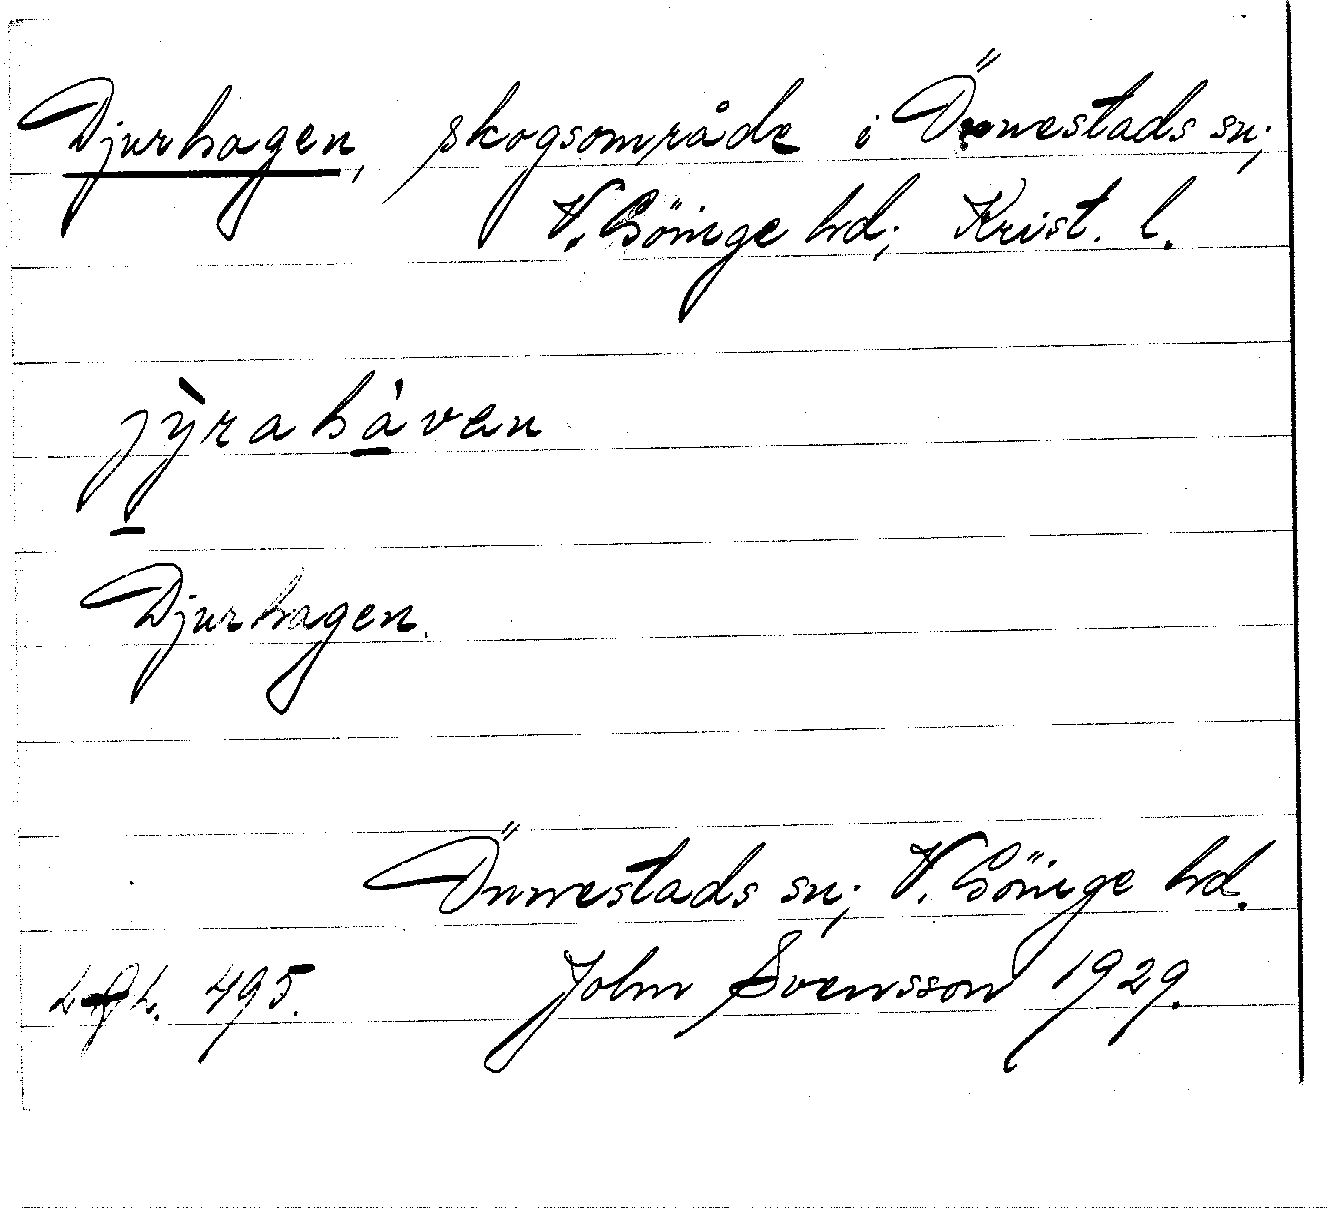 Djurhagen, skogsområde i Önnestads sn;
V. Göinge hd; Krist. l.
jỳrahávan
Djurhagen.
Önnestads sn; V. Göinge hd.
495. John Svensson 1929.